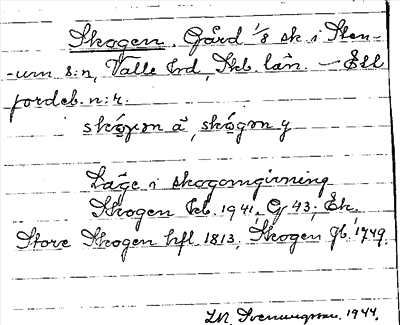 Skogen. Gård 1/8 sk. i Sten-
-um s:n, Valle hrd, Skb. län. — Ett
jordeb. n:r.
skógən ä, skógən y
Läge i skogomgivning
Skogen Jeb. 1941, G 43; Ek.
Stora Skogen hfl. 1813, Skogen Jb. 1749.
Svenungsson. 1944.